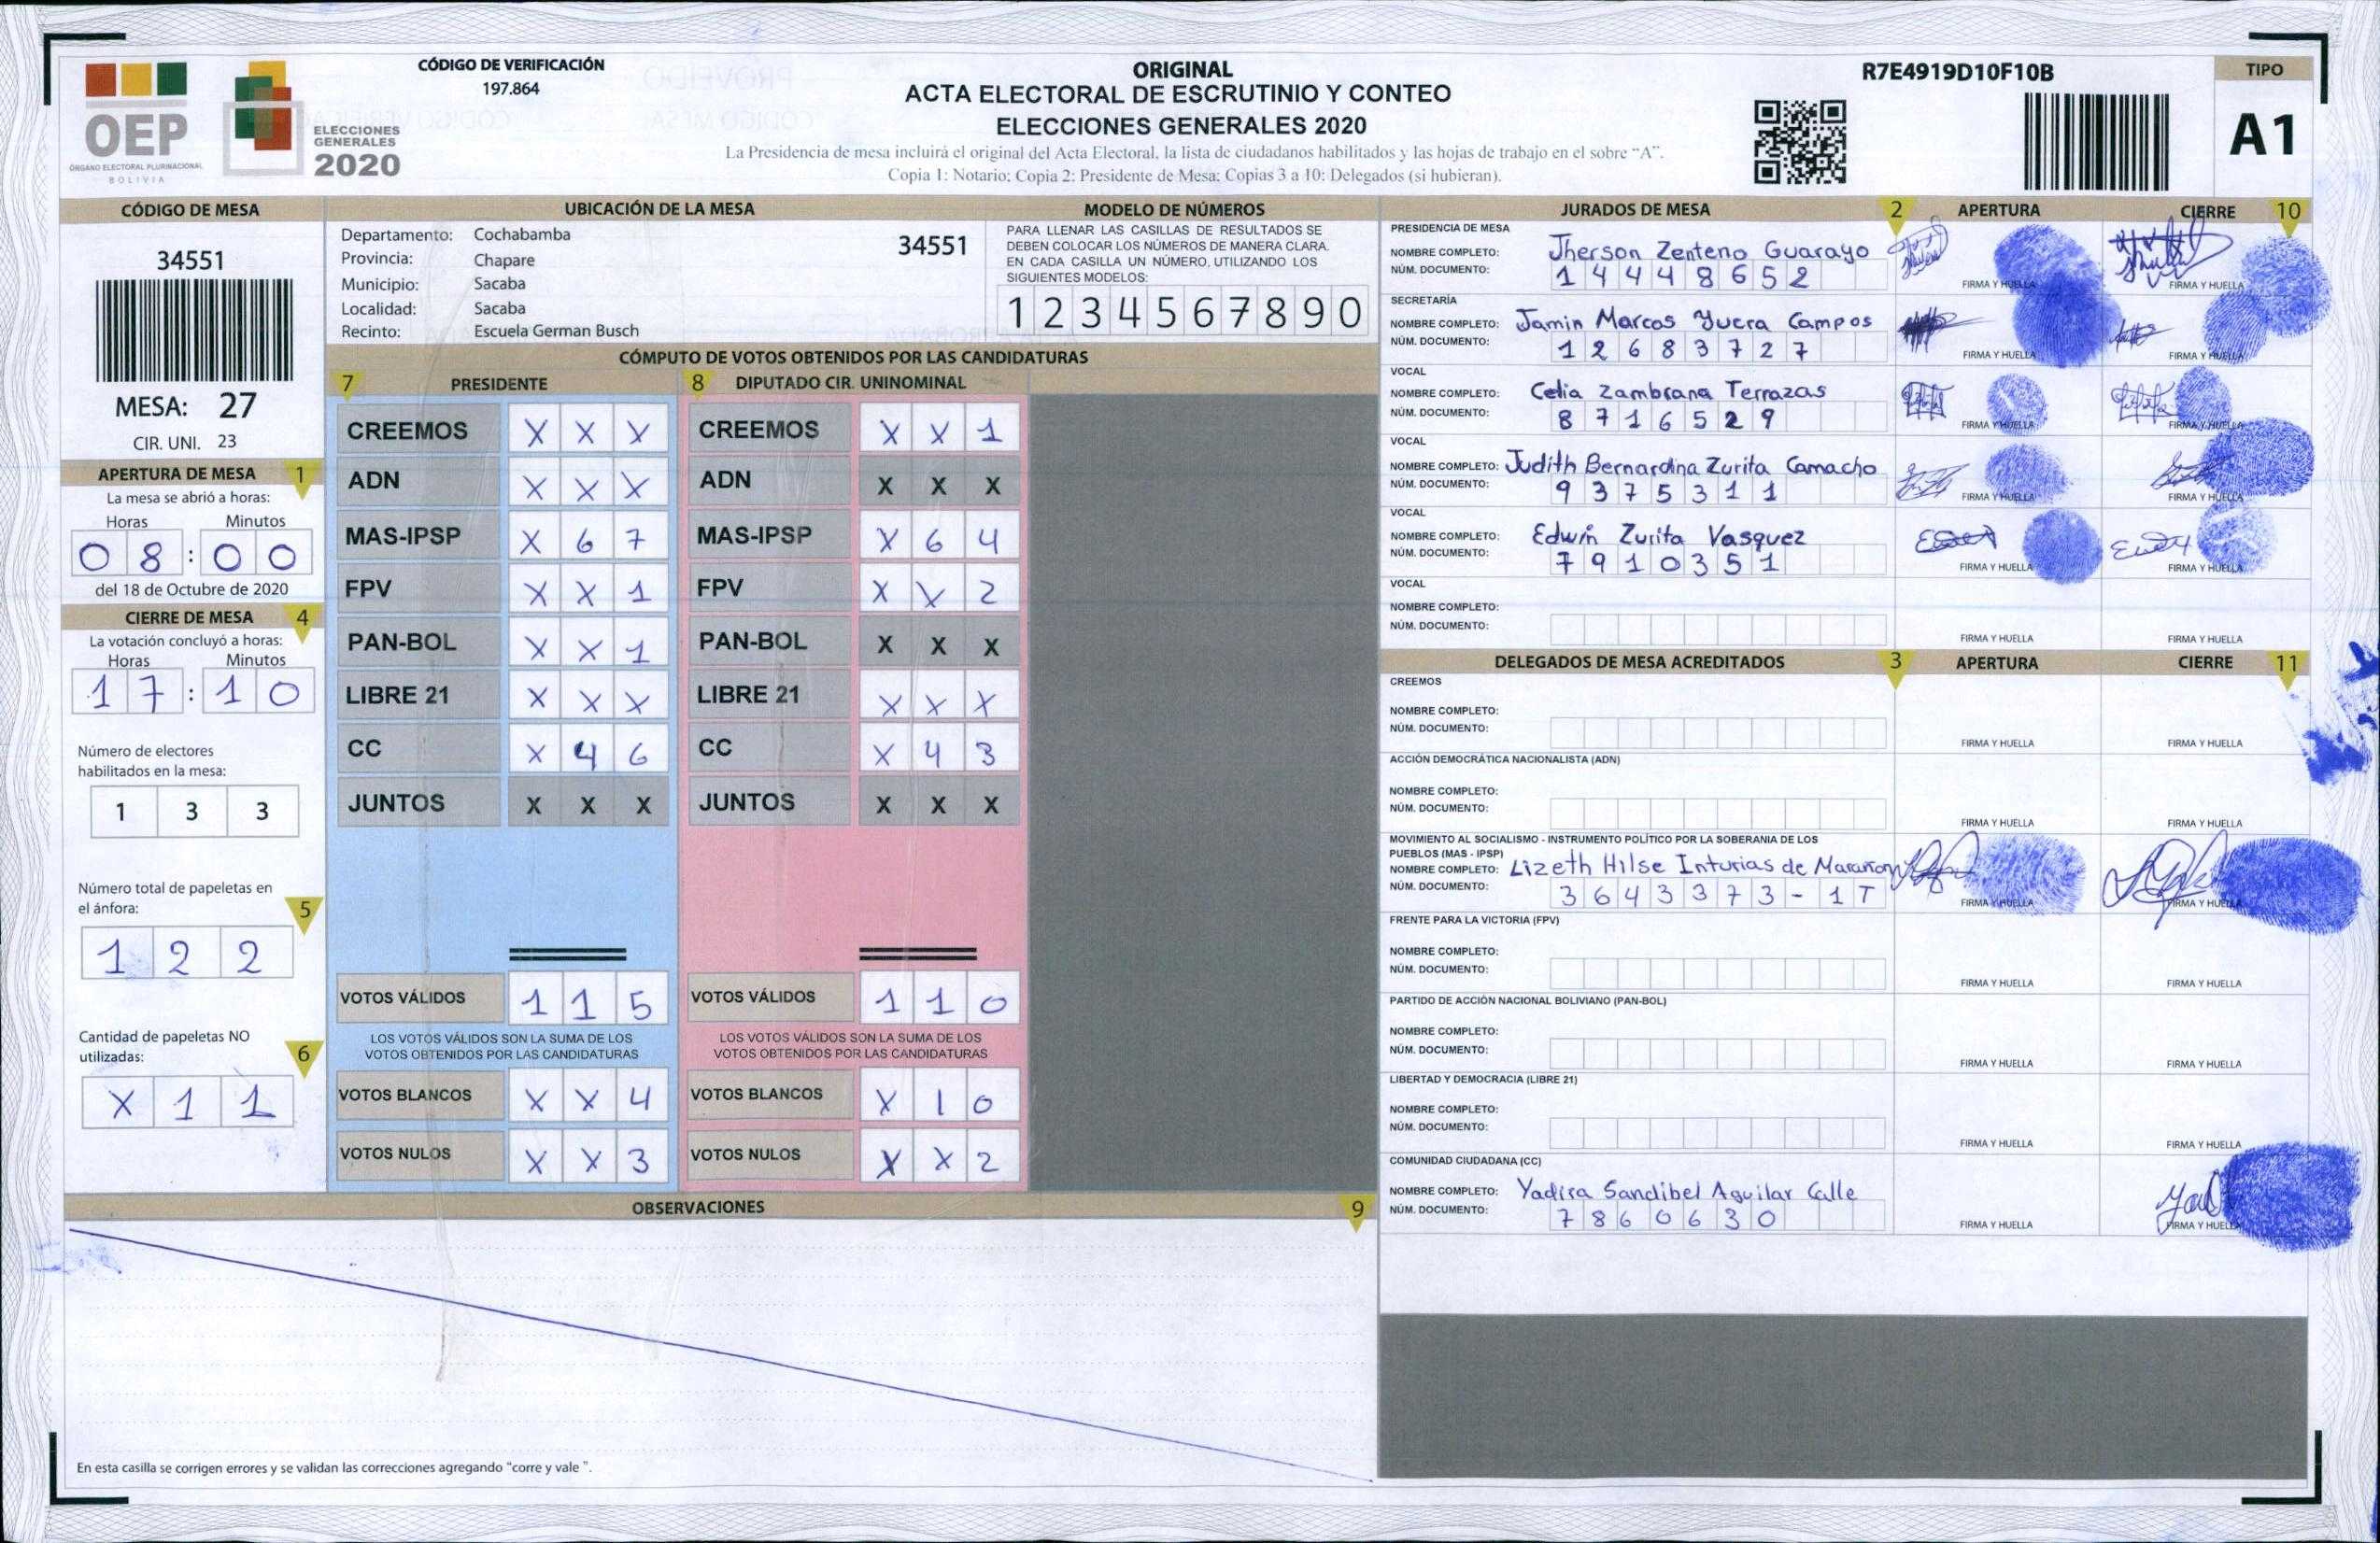 CÓDIGO DE VERIFICACIÓN
197.864
ORIGINAL
ACTA ELECTORAL DE ESCRUTINIO Y CONTEO
ELECCIONES GENERALES 2020
La Presidencia de mesa incluirá el original del Acta Electoral, la lista de ciudadanos habilitados y las hojas de trabajo en el sobre "A".
Copia 1: Notario; Copia 2: Presidente de Mesa; Copias 3 a 10: Delegados (si hubieran).
R7E4919D10F10B
TIPO
A1
OEP
ÓRGANO ELECTORAL PLURINACIONAL
BOLIVIA
ELECCIONES
GENERALES
2020
CÓDIGO DE MESA
34551
MESA: 27
CIR. UNI. 23
APERTURA DE MESA 1
La mesa se abrió a horas:
Horas Minutos
0 8 : 0 0
del 18 de Octubre de 2020
CIERRE DE MESA 4
La votación concluyó a horas:
Horas Minutos
1 7 : 1 0
Número de electores
habilitados en la mesa:
1 3 3
Número total de papeletas en
el ánfora: 5
1 2 2
Cantidad de papeletas NO
utilizadas: 6
X 1 1
UBICACIÓN DE LA MESA
Departamento: Cochabamba
34551
Provincia: Chapare
Municipio: Sacaba
Localidad: Sacaba
Recinto: Escuela German Busch
MODELO DE NÚMEROS
PARA LLENAR LAS CASILLAS DE RESULTADOS SE
DEBEN COLOCAR LOS NÚMEROS DE MANERA CLARA.
EN CADA CASILLA UN NÚMERO, UTILIZANDO LOS
SIGUIENTES MODELOS:
1 2 3 4 5 6 7 8 9 0
CÓMPUTO DE VOTOS OBTENIDOS POR LAS CANDIDATURAS
7 PRESIDENTE
CREEMOS X X X
ADN X X X
MAS-IPSP X 6 7
FPV X X 1
PAN-BOL X X 1
LIBRE 21 X X X
CC X 4 6
JUNTOS X X X
VOTOS VÁLIDOS 1 1 5
LOS VOTOS VÁLIDOS SON LA SUMA DE LOS
VOTOS OBTENIDOS POR LAS CANDIDATURAS
VOTOS BLANCOS X X 4
VOTOS NULOS X X 3
8 DIPUTADO CIR. UNINOMINAL
CREEMOS X X 1
ADN X X X
MAS-IPSP X 6 4
FPV X X 2
PAN-BOL X X X
LIBRE 21 X X X
CC X 4 3
JUNTOS X X X
VOTOS VÁLIDOS 1 1 0
LOS VOTOS VÁLIDOS SON LA SUMA DE LOS
VOTOS OBTENIDOS POR LAS CANDIDATURAS
VOTOS BLANCOS X 1 0
VOTOS NULOS X X 2
OBSERVACIONES 9
En esta casilla se corrigen errores y se validan las correcciones agregando "corre y vale ".
JURADOS DE MESA 2 APERTURA CIERRE 10
PRESIDENCIA DE MESA
NOMBRE COMPLETO: Jherson Zenteno Guarayo
NÚM. DOCUMENTO: 1 4 4 4 8 6 5 2
FIRMA Y HUELLA FIRMA Y HUELLA
SECRETARÍA
NOMBRE COMPLETO: Jamin Marcos Yucra Campos
NÚM. DOCUMENTO: 1 2 6 8 3 7 2 7
FIRMA Y HUELLA FIRMA Y HUELLA
VOCAL
NOMBRE COMPLETO: Celia Zambrana Terrazas
NÚM. DOCUMENTO: 8 7 1 6 5 2 9
FIRMA Y HUELLA FIRMA Y HUELLA
VOCAL
NOMBRE COMPLETO: Judith Bernardina Zurita Camacho
NÚM. DOCUMENTO: 9 3 7 5 3 1 1
FIRMA Y HUELLA FIRMA Y HUELLA
VOCAL
NOMBRE COMPLETO: Edwin Zurita Vasquez
NÚM. DOCUMENTO: 7 9 1 0 3 5 1
FIRMA Y HUELLA FIRMA Y HUELLA
VOCAL
NOMBRE COMPLETO:
NÚM. DOCUMENTO:
FIRMA Y HUELLA FIRMA Y HUELLA
DELEGADOS DE MESA ACREDITADOS 3 APERTURA CIERRE 11
CREEMOS
NOMBRE COMPLETO:
NÚM. DOCUMENTO:
FIRMA Y HUELLA FIRMA Y HUELLA
ACCIÓN DEMOCRÁTICA NACIONALISTA (ADN)
NOMBRE COMPLETO:
NÚM. DOCUMENTO:
FIRMA Y HUELLA FIRMA Y HUELLA
MOVIMIENTO AL SOCIALISMO - INSTRUMENTO POLÍTICO POR LA SOBERANIA DE LOS
PUEBLOS (MAS - IPSP)
NOMBRE COMPLETO: Lizeth Hilse Inturias de Marañon
NÚM. DOCUMENTO: 3 6 4 3 3 7 3 - 1 T
FIRMA Y HUELLA FIRMA Y HUELLA
FRENTE PARA LA VICTORIA (FPV)
NOMBRE COMPLETO:
NÚM. DOCUMENTO:
FIRMA Y HUELLA FIRMA Y HUELLA
PARTIDO DE ACCIÓN NACIONAL BOLIVIANO (PAN-BOL)
NOMBRE COMPLETO:
NÚM. DOCUMENTO:
FIRMA Y HUELLA FIRMA Y HUELLA
LIBERTAD Y DEMOCRACIA (LIBRE 21)
NOMBRE COMPLETO:
NÚM. DOCUMENTO:
FIRMA Y HUELLA FIRMA Y HUELLA
COMUNIDAD CIUDADANA (CC)
NOMBRE COMPLETO: Yadira Sandibel Aguilar Calle
NÚM. DOCUMENTO: 7 8 6 0 6 3 0
FIRMA Y HUELLA FIRMA Y HUELLA